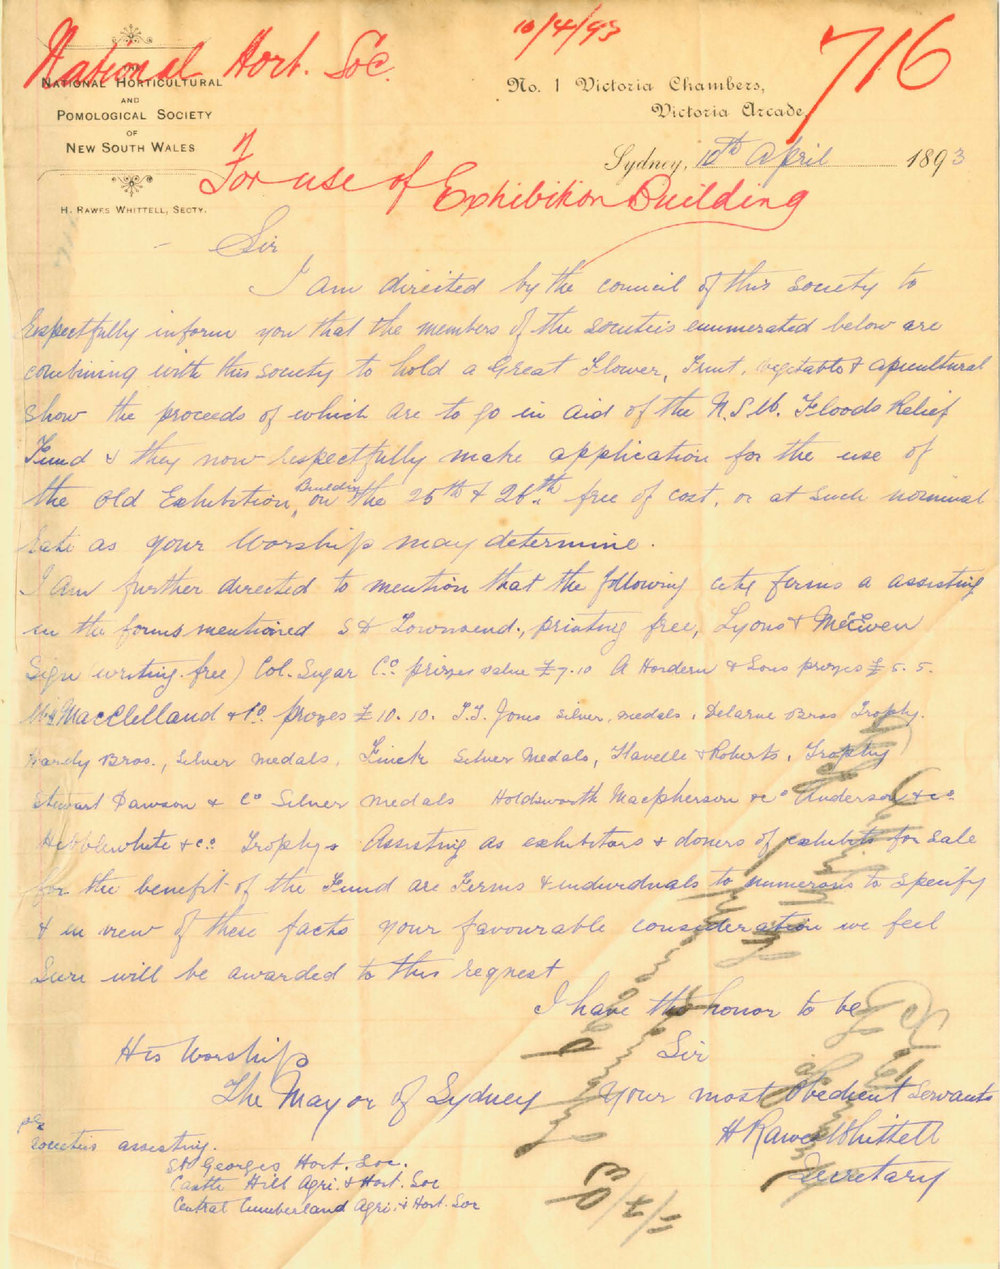 National Hort. Soc.
10/4/93
716
THE
NATIONAL HORTICULTURAL
AND
POMOLOGICAL SOCIETY
OF
NEW SOUTH WALES
H. RAWES WHITTELL, SECTY.
No. 1 Victoria Chambers,
Victoria Arcade,
Sydney, 10th April 1893
For use of Exhibition Building
Sir
I am directed by the council of this society to
respectfully inform you that the members of the societies enumerated below are
combining with this society to hold a Great Flower, Fruit, vegetable & apicultural
show the proceeds of which are to go in aid of the N.S.W. Floods Relief
Fund & they now respectfully make application for the use of
the Old Exhibition Building on the 25th & 26th free of cost, or at such nominal
rate as your Worship may determine.
I am further directed to mention that the following city firms a assisting
in the forms mentioned S D Townsend, printing free, Lyons & McEwen
Sign (writing free) Col. Sugar Co prizes value £7.10 A Hordern & Sons prizes £5.5.
MacClelland & Co. prizes £10.10. T.J. Jones silver medals, Delarue Bros Trophy.
Hardy Bros., Silver medals, Finck Silver Medals, Flavelle & Roberts, Trophy
Stewart Dawson & Co Silver medals Holdsworth Macpherson & Co Anderson & Co.
Hebblewhite & Co. Trophys Assisting as exhibitors & donors of exhibits for sale
for the benefit of the Fund are Firms & individuals to numerous to specify
& in view of these facts your favourable consideration we feel
sure will be awarded to this request
I have the honor to be
His Worship
Sir
The Mayor of Sydney
Your most Obedient Servants
H Rawes Whittell
Secretary
societies assisting.
St Georges Hort. Soc.
Castle Hill Agri. & Hort. Soc
Central Cumberland Agri. & Hort. Soc